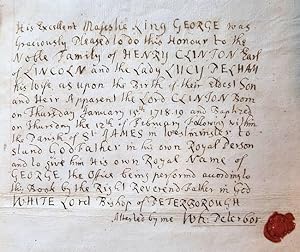 His Excellent Majestie King GEORGE was
Graciously Pleased to do this Honour to the
Noble Family of HENRY CLINTON Earl
of LINCOLN and the Lady LUCY PELHAM
his Wife as upon the Birth of their Eldest Son
and Heir Apparent the Lord CLINTON Born
on Thursday January 15th 1718.19 and Baptized
on Thursday the of February following within
the Parish of St JAMES in Westminster to
stand God Father in his own Royal Person
and to give him His own Royal Name of
GEORGE, the Office being perform'd according to
this Book by the Rigt Reverend Father in God
WHITE Lord Bishop of PETERBOROUGH
Attested by me Wh: Peterbor